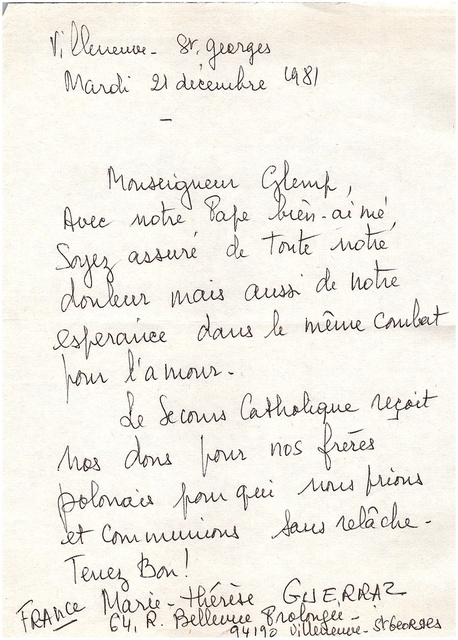 Villeneuve - St. georges
Mardi 21 décembre 1981
-
Monseigneur Glemp,
Avec notre Pape bien-aimé,
Soyez assuré de toute notre
douleur mais aussi de notre
esperance dans le même combat
pour l'amour.
Le Secours Catholique reçoit
nos dons pour nos frères
polonais pour qui nous prions
et communions sans relâche.
Tenez Bon!
Marie-Thérèse GUERRAZ
FRANCE 64, R. Bellevue Prolongée -
94190 Villeneuve - St Georges